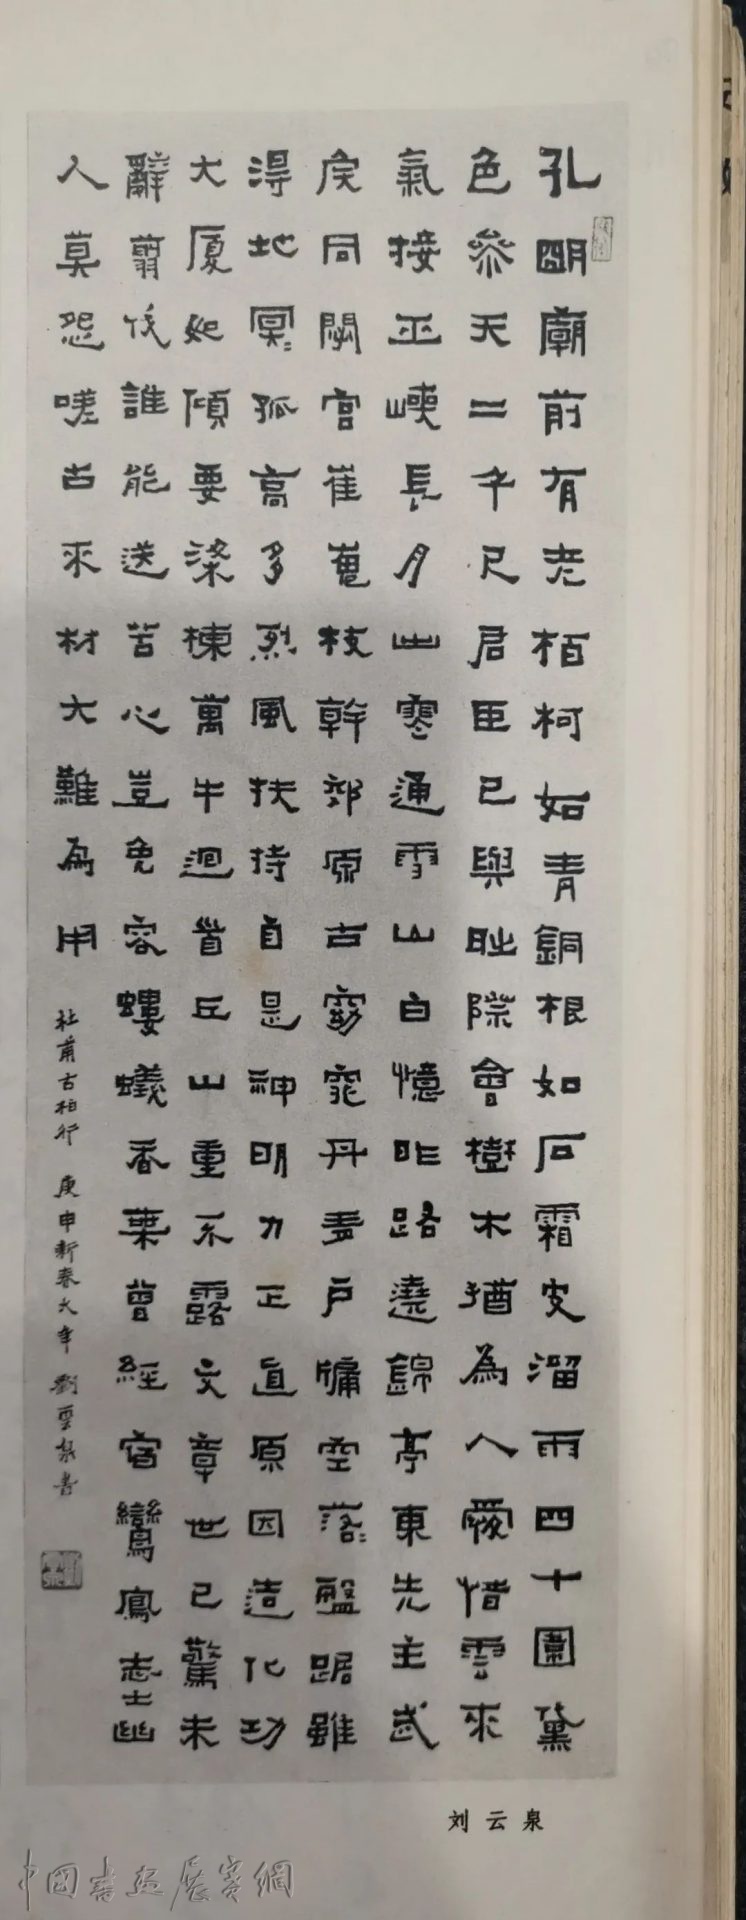 孔明廟前有老柏柯如青銅根如石霜皮溜雨四十圍黛
色參天二千尺君臣已與時際會樹木猶為人愛惜雲來
氣接巫峽長月出寒通雪山白憶昨路遶錦亭東先主武
侯同閟宮崔嵬枝幹郊原古窈窕丹青戶牖空落〻盤踞雖
得地冥〻孤高多烈風扶持自是神明力正直原因造化功
大廈如傾要梁棟萬牛迴首丘山重不露文章世已驚未
辭翦伐誰能送苦心豈免容螻蟻香葉曾經宿鸞鳳志士幽
人莫怨嗟古來材大難為用 杜甫古柏行 庚申新春 劉雲泉書
刘云泉
中國書畫展賽網